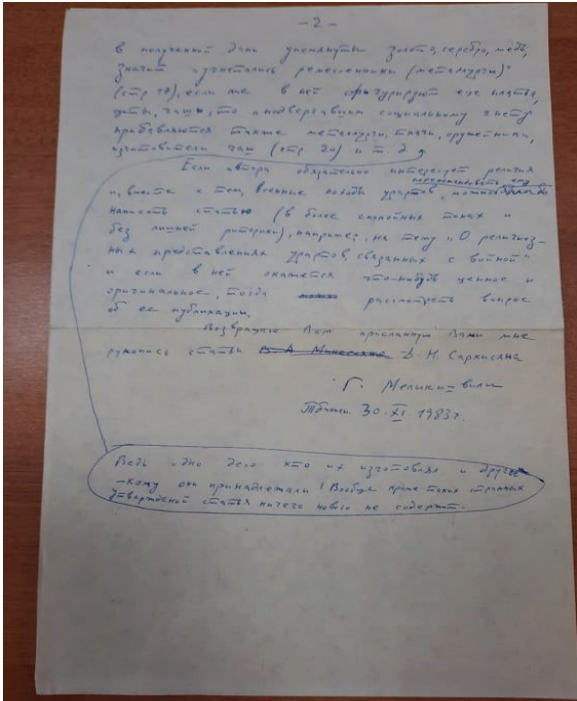 - 2 -
в полученной дань упомянуты золото, серебро, медь,
значит "угнетались ремесленники (металлурги)"
(стр 19), если же в ней фигурируют еще платья,
щиты, чаши, то к подвергавшим социальному гнету
прибавляются также металлурги, ткачи, оружейники,
изготовители чаш (стр 20) и т. д.
Если автора обязательно интересует религия
и, вместе с тем, военные походы урартов, можно
порекомендовать ему
написать статью (в более спокойных тонах и
без лишней риторики), например, на тему "О религиоз-
ных представлениях урартов, связанных с войной"
и если в ней окажется что-нибудь ценное и
оригинальное, тогда рассмотреть вопрос
об ее публикации.
Возвращаю Вам присланную Вами мне
рукопись статьи В. А. Минасяна Д. Н. Саркисяна
Г. Меликишвили
Тбилиси. 30.XI.1983г.
Ведь одно дело кто их изготовлял и другое
- кому они принадлежали! Вообще кроме таких странных
утверждений статья ничего нового не содержит.